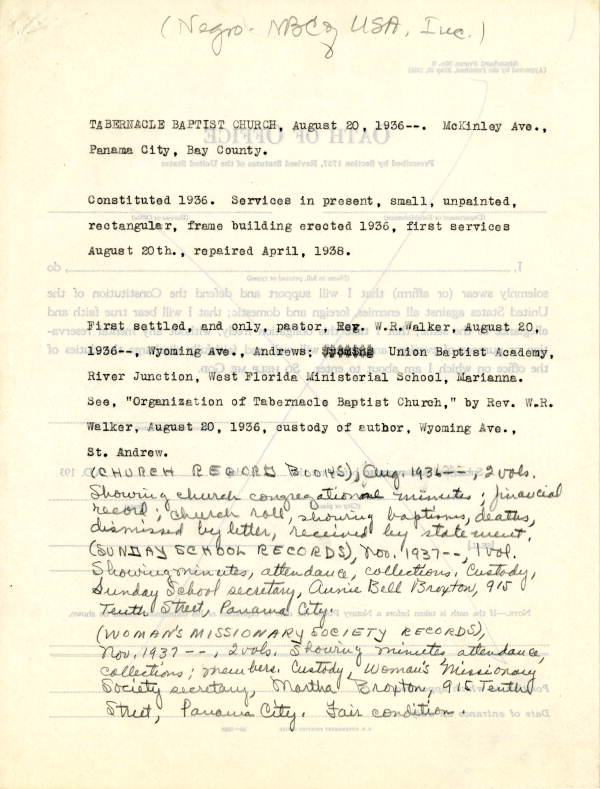 (Negro - NBC of USA, Inc.)
TABERNACLE BAPTIST CHURCH, August 20, 1936--. McKinley Ave.,
Panama City, Bay County.
Constituted 1936. Services in present, small, unpainted,
rectangular, frame building erected 1936, first services
August 20th., repaired April, 1938.
First settled, and only, pastor, Rev. W.R.Walker, August 20,
1936--, Wyoming Ave., Andrews: Union Baptist Academy,
River Junction, West Florida Ministerial School, Marianna.
See, "Organization of Tabernacle Baptist Church," by Rev. W.R.
Walker, August 20, 1936, custody of author, Wyoming Ave.,
St. Andrew.
(CHURCH RECORD BOOKS), Aug. 1936--, 2 vols.
Showing church congregational minutes; financial
record; church roll, showing baptisms, deaths,
dismissed by letter, received by statement.
(SUNDAY SCHOOL RECORDS), Nov. 1937--, 1 vol.
Showing minutes, attendance, collections. Custody,
Sunday School secretary, Annie Bell Broxton, 915
Tenth Street, Panama City.
(WOMAN'S MISSIONARY SOCIETY RECORDS),
Nov. 1937--, 2 vols. Showing minutes attendance,
collections; members. Custody, Woman's Missionary
Society secretary, Martha Broxton, 915 Tenth
Street, Panama City. Fair condition.